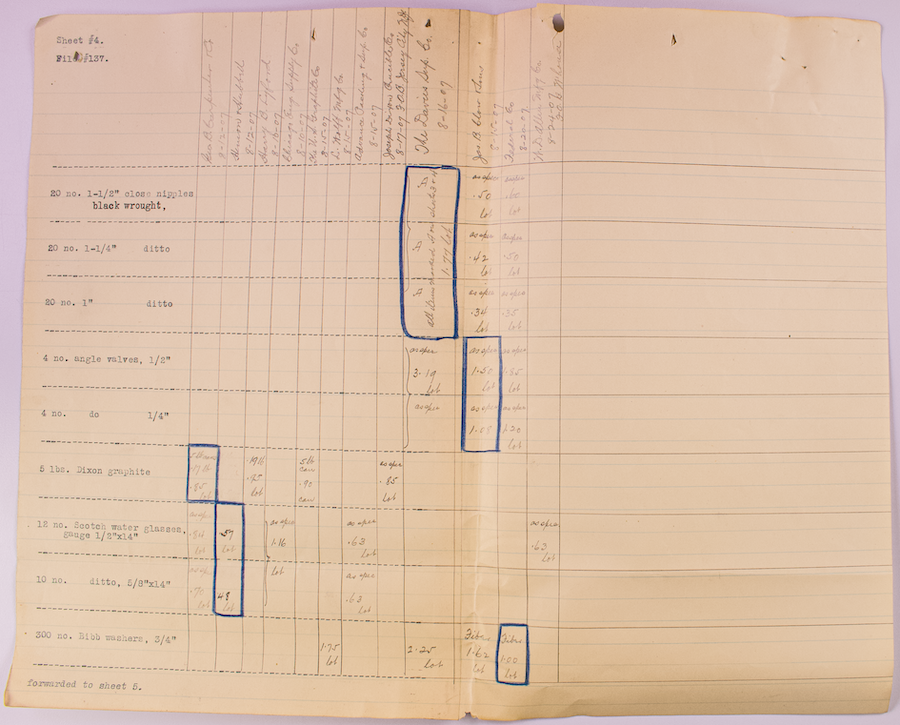 Sheet #4.
File #137.
Geo B Carpenter & Co
8-12-07
8-12-07
Harry
8-10-07
Chicago Supply Co
8-10-07
The U.S. Graphite Co
8-15-07
L. Wolff Mfg Co
8-15-07
Advance Packing & Sup. Co
8-15-07
Joseph Dixon Crucible Co
8-17-07 F.O.B. Jersey City N.J.
The Davies Sup. Co.
8-16-07
Jas. B Clow & Sons
Federal Co
8-20-07
W.D. Allen Mfg Co
8-24-07
20 no. 1-1/2" close nipples
black wrought,
as spec
.50 .60
lot lot
20 no. 1-1/4" ditto
as spec as spec
.42 .50
lot lot
1.77 lot
20 no. 1" ditto
as spec as spec
.34 .35
lot lot
4 no. angle valves, 1/2"
as spec as spec as spec
3.19 1.50 1.85
lot lot lot
4 no. do 1/4"
as spec as spec as spec
1.20
lot
5 lbs. Dixon graphite
.17 lb .19 lb 5 lb can as spec
.85 .95 .90 .85
lot lot can lot
12 no. Scotch water glasses,
gauge 1/2"x14"
as spec as spec as spec as spec
57 1.16 .63 .63
lot lot lot lot
10 no. ditto, 5/8"x14"
as spec lot as spec
.70 48 .63
lot lot lot
300 no. Bibb washers, 3/4"
1.75 2.25 Fibre 1.62 Fibre 1.00
lot lot lot lot
forwarded to sheet 5.